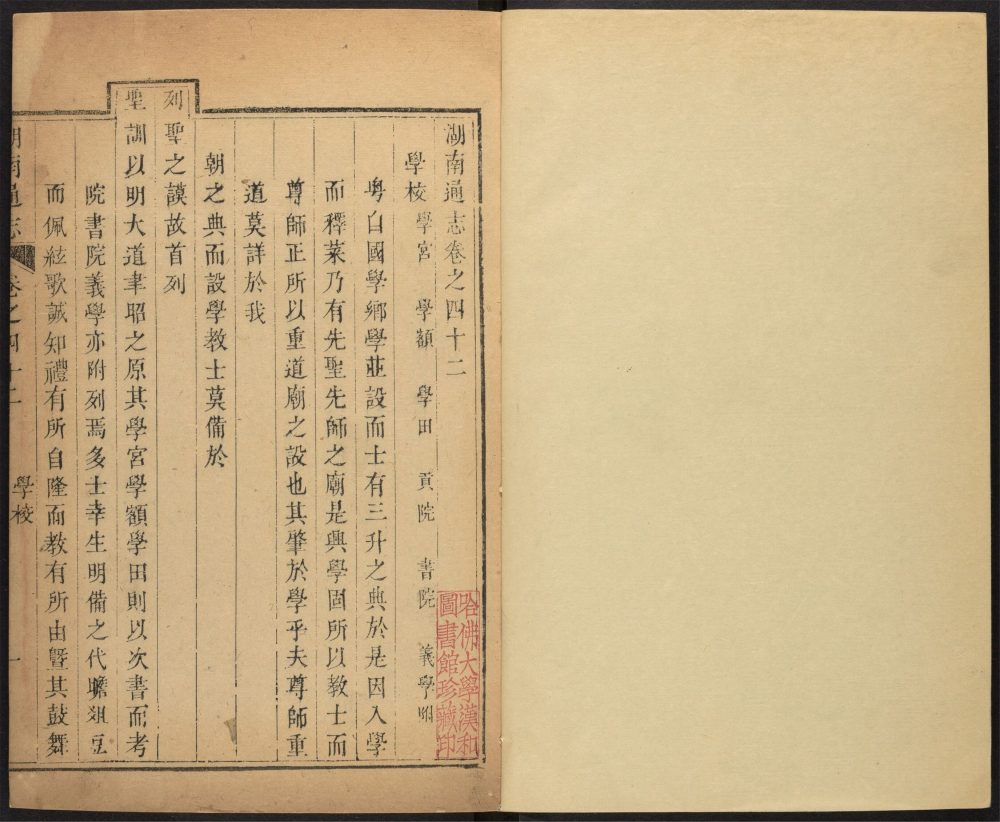 湖南通志卷之四十二
學校 學宮 學額 學田 貢院 書院 義學附
粤自國學鄉學並設而士有三升之典於是因入學
而釋菜乃有先聖先師之廟是興學固所以教士而
尊師正所以重道廟之設也其肇於學乎夫尊師重
道莫詳於我
朝之典而設學教士莫備於
列聖之謨故首列
聖訓以明大道聿昭之原其學宮學額學田則以次書而考
院書院義學亦附列焉多士幸生明備之代瞻俎豆
而佩絃歌誠知禮有所自隆而教有所由曁其鼓舞
湖南通志 卷之四十二 學校 一
哈佛大學漢和
圖書館珍藏印